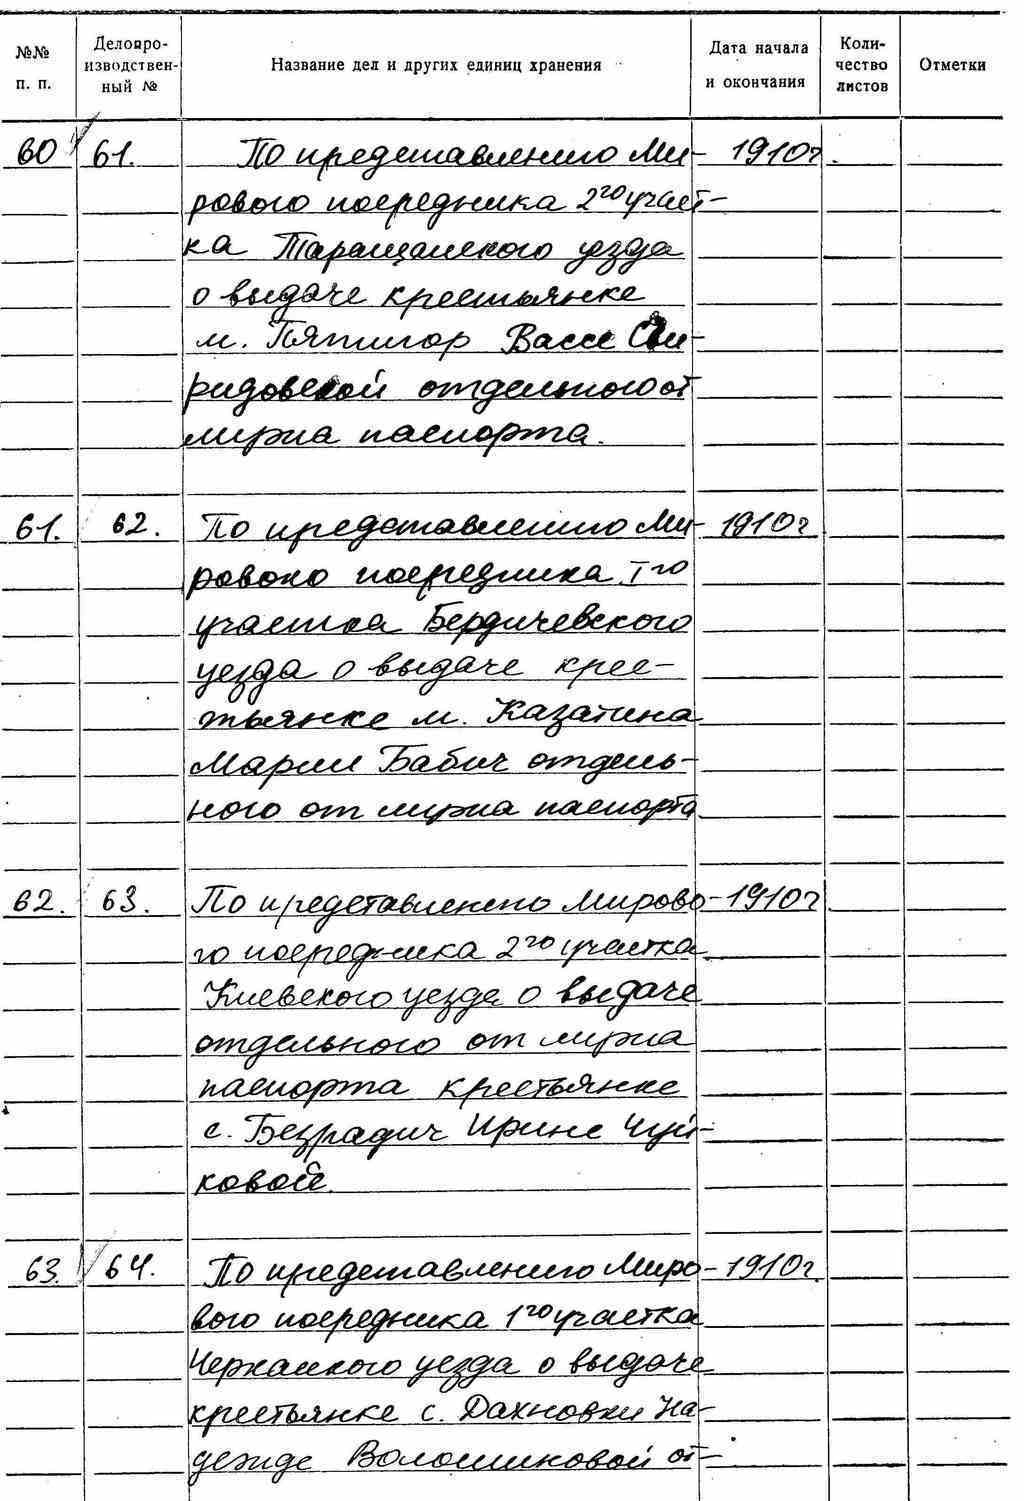 №№ п. п. Делопро- изводствен- ный № Название дел и других единиц хранения Дата начала и окончания Коли- чество листов Отметки
60 61. По представлению Ми- 1910г.
рового посредника 2го участ-
ка Таращанского уезда
о выдаче крестьянке
м. Пятигор Вассе Сви-
ридовской отдельного от
мужа паспорта.
61. 62. По представлению Ми- 1910г.
рового посредника I го
участка Бердичевского
уезда о выдаче крес-
тьянке м. Казатина
Марии Бабич отдель-
ного от мужа паспорта
62. 63. По представлению Мирово- 1910г
го посредника 2го участка
Киевского уезда о выдаче
отдельного от мужа
паспорта крестьянке
с. Безрадич Ирине Чуй-
ковой.
63. 64. По представлению Миро- 1910г.
вого посредника 1го участка
Черкасского уезда о выдаче
крестьянке с. Дахновки На-
дежде Волошиновой от-